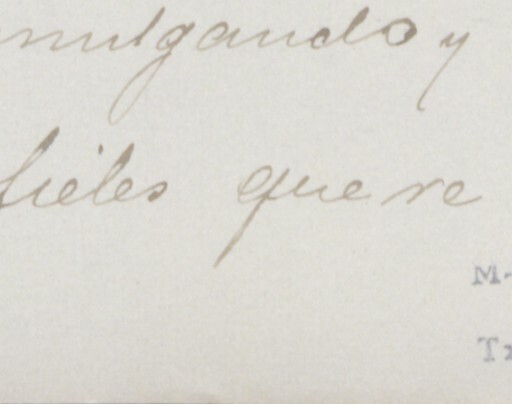 mulgando y
fieles que re
M-
Tx